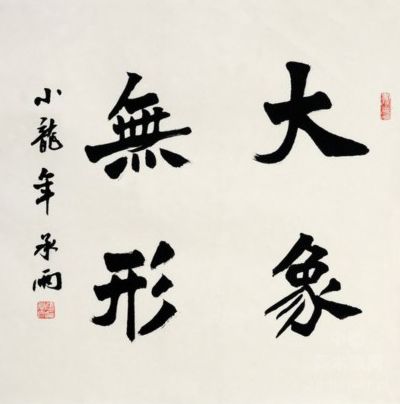 大象
無形
小龍年承雨